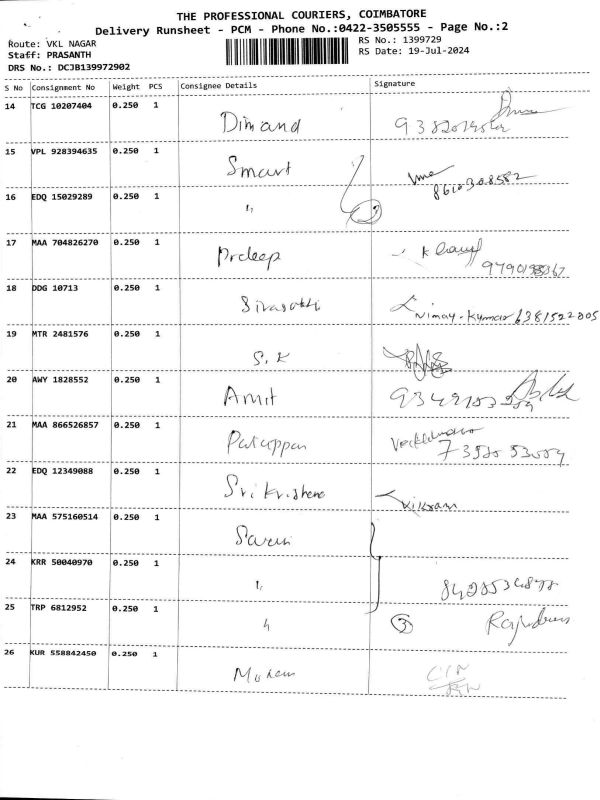 THE PROFESSIONAL COURIERS, COIMBATORE
Delivery Runsheet - PCM - Phone No.:0422-3505555 - Page No.:2
Route: VKL NAGAR
Staff: PRASANTH
DRS No.: DCJB139972902
RS No.: 1399729
RS Date: 19-Jul-2024
S No Consignment No Weight PCS Consignee Details Signature
14 TCG 10207404 0.250 1 Dimand
15 VPL 928394635 0.250 1 Smart
8610308582
16 EDQ 15029289 0.250 1 " 2
17 MAA 704826270 0.250 1 Prdeep
18 DDG 10713 0.250 1 Sivasakti Nimay-Kumar 6381522805
19 MTR 2481576 0.250 1 S.K
20 AWY 1828552 0.250 1 Amit
21 MAA 866526857 0.250 1
22 EDQ 12349088 0.250 1 Vikram
23 MAA 575160514 0.250 1
24 KRR 50040970 0.250 1 "
25 TRP 6812952 0.250 1 " 3
26 KUR 558842450 0.250 1